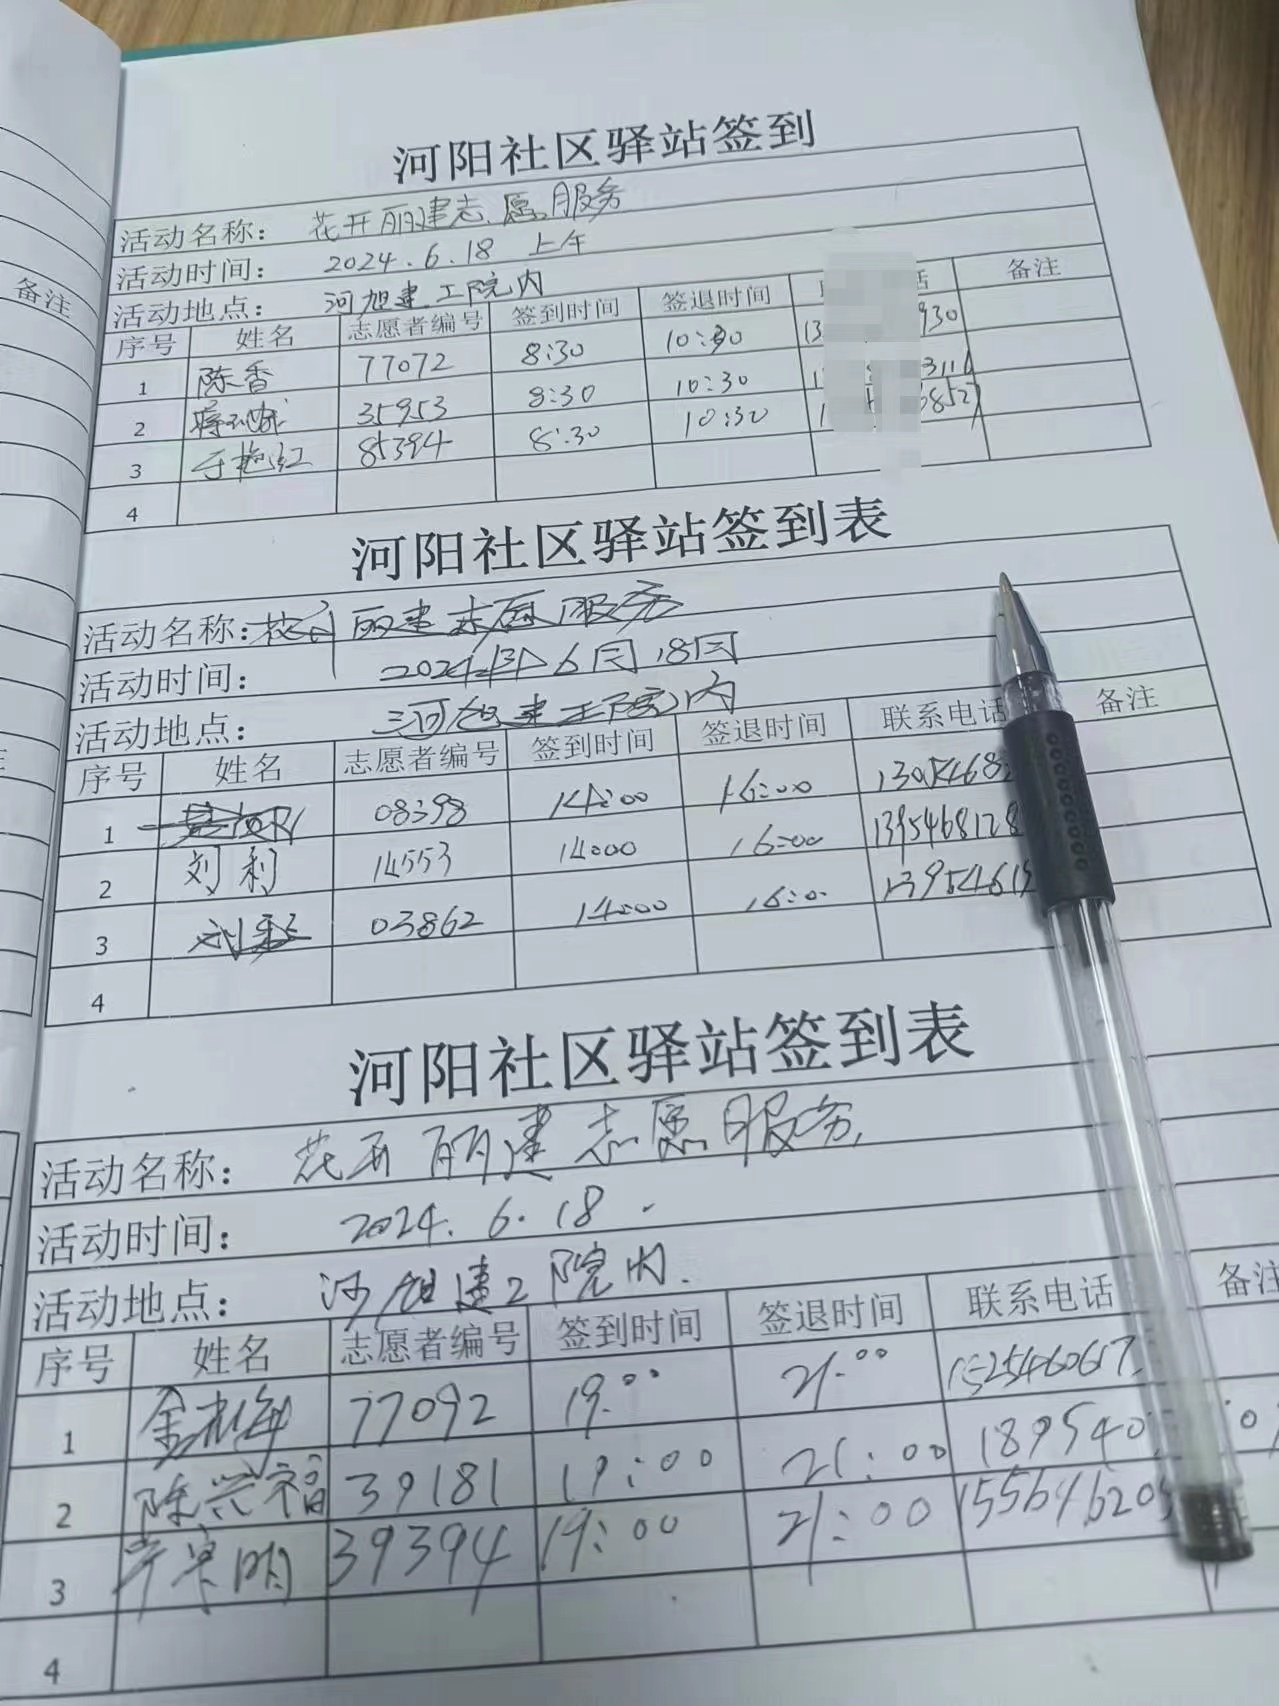 备注
河阳社区驿站签到
活动名称： 花开丽建志愿服务
活动时间： 2024.6.18 上午
活动地点： 河旭建工院内
序号 姓名 志愿者编号 签到时间 签退时间 话 备注
1 陈香 77072 8:30 10:30 13 930
2 35953 8:30 10:30 1 3116
3 于艳红 85394 8:30 10:30 1 6852
4
河阳社区驿站签到表
活动名称： 花开丽建志愿服务
活动时间： 2024年6月18日
活动地点： 河旭建工院内
序号 姓名 志愿者编号 签到时间 签退时间 联系电话 备注
1 08398 14:00 16:00 1305468
2 刘利 14553 14:00 16:00 1395468128
3 03862 14:00 16:0 13954619
4
河阳社区驿站签到表
活动名称： 花开丽建志愿服务
活动时间： 2024.6.18.
活动地点： 河旭建工院内.
序号 姓名 志愿者编号 签到时间 签退时间 联系电话 备注
1 77092 19:00 21:00 1525460617
2 陈兴福 39181 19:00 21:00 189540
3 39394 19:00 21:00 155646205
4